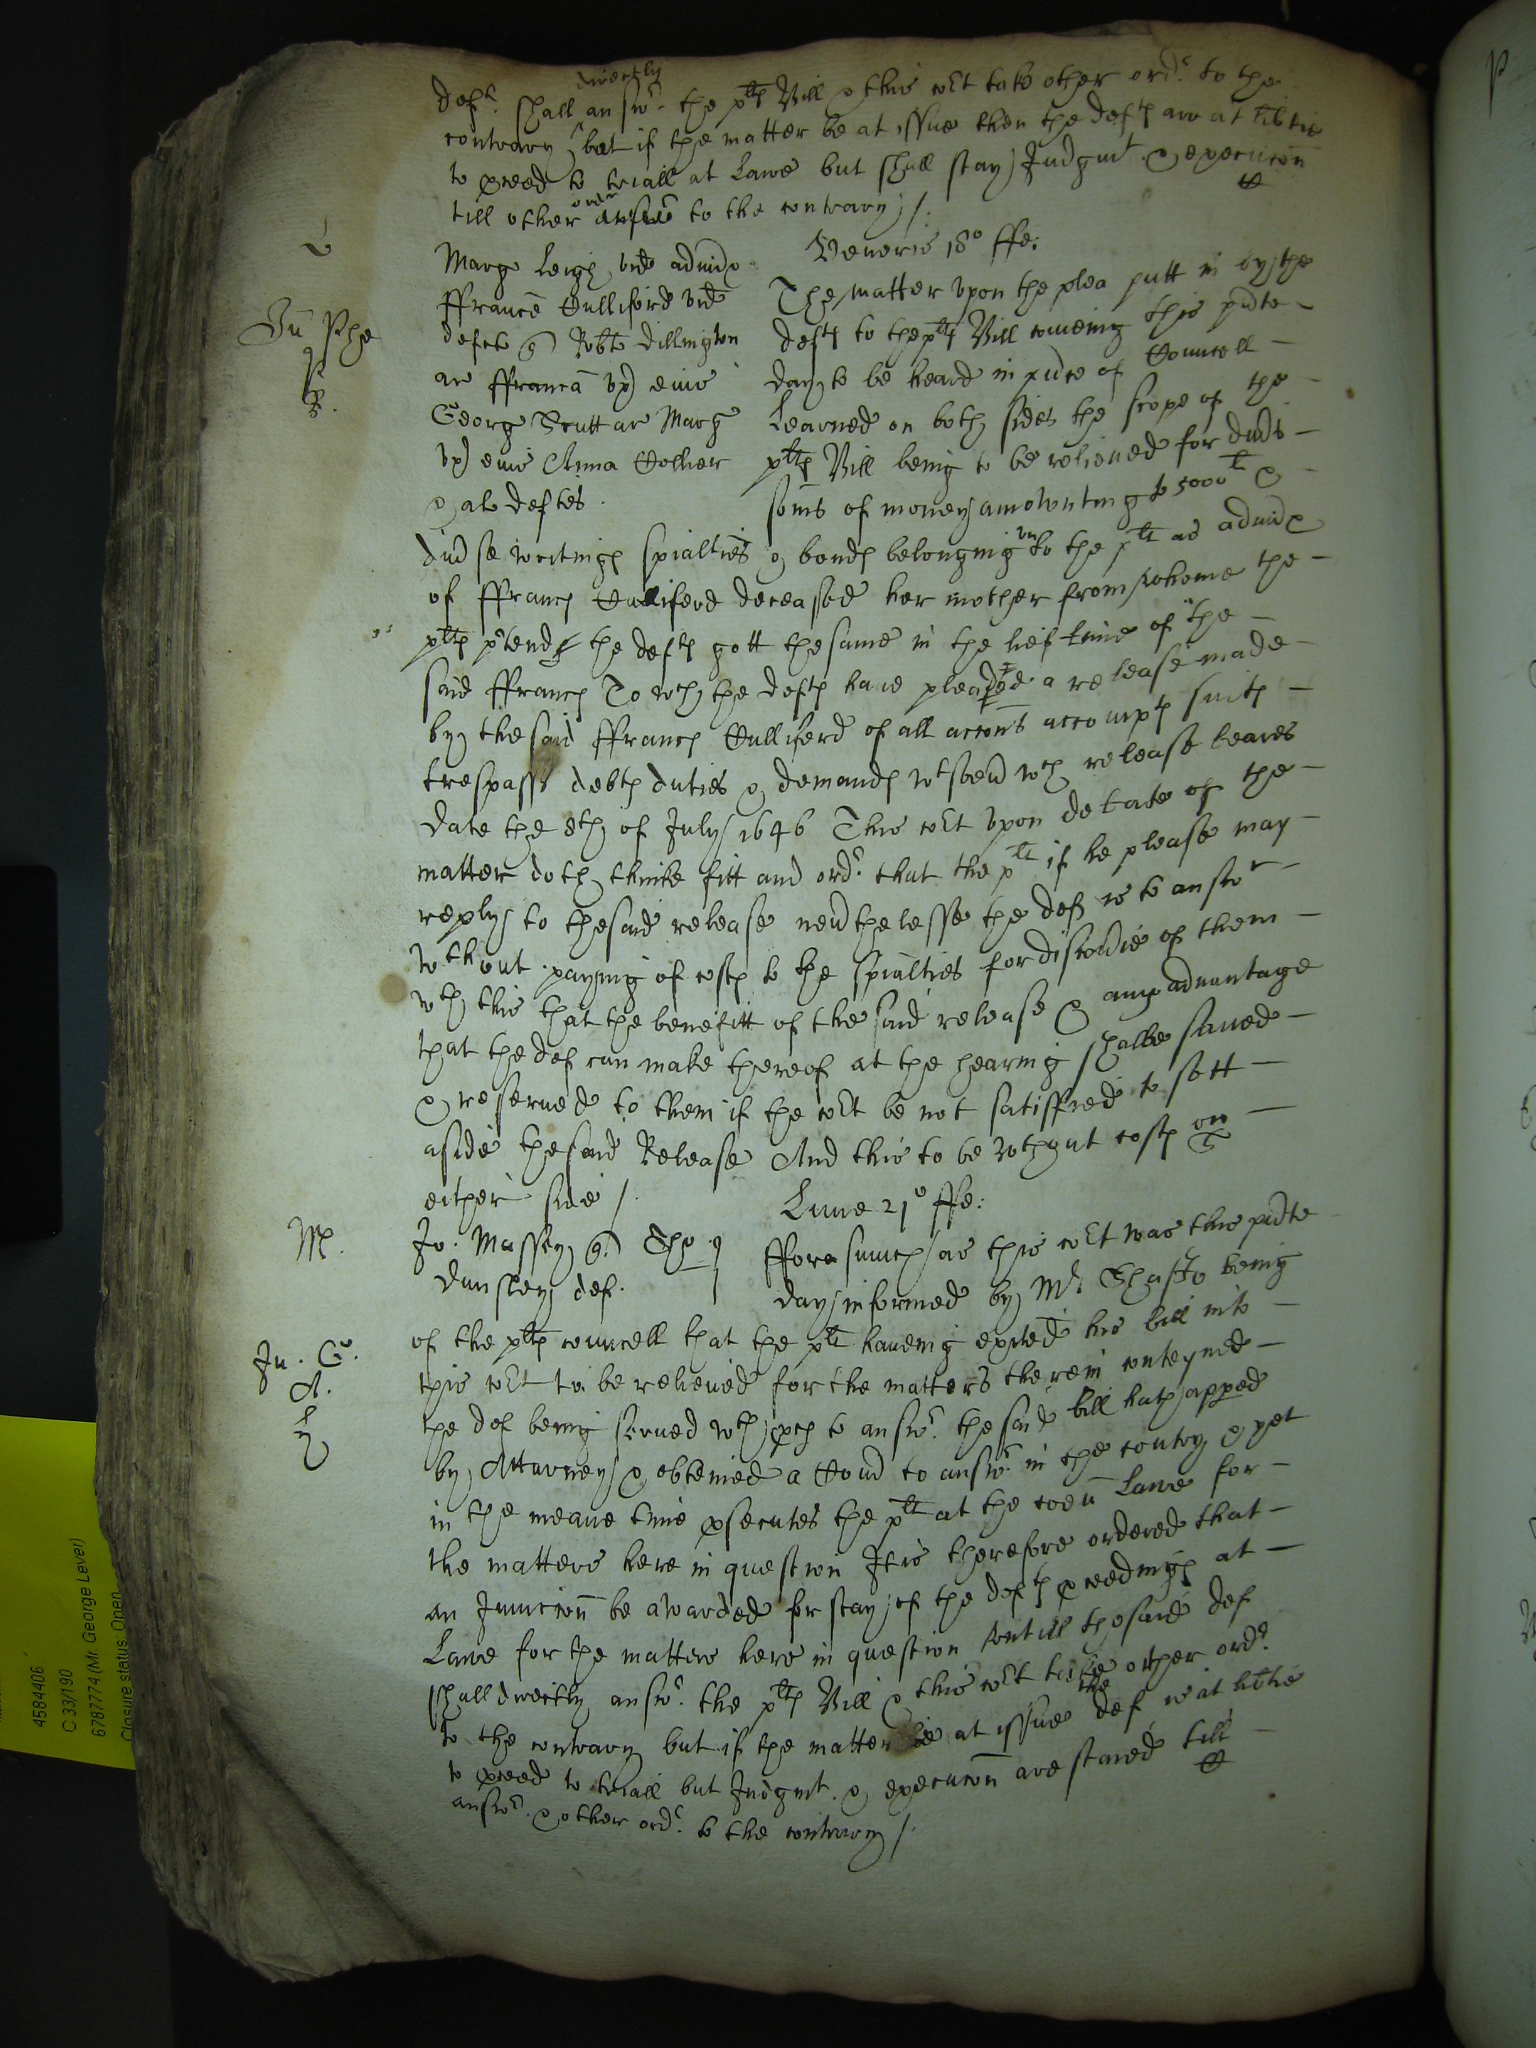 directly
deft. shall answ. the plts Bill & this cort take other ordr. to the
contrary but if the matter be at issue then the defts are at libtie
to pceed to triall at Lawe but shall stay Judgmt & execucon
till other ordr to the contrary /.
Veneris 18o ffe:
Marg Leigh vid admix
ffrance Culliford vid
defcte q Robte Dillington
ar ffranca vx eius
Georg Scutt ar Marg
vx eius Anna Collier
& al deftes.
Bu Phe
The matter upon the plea putt in by the
defts to the plts Bill comeing this pnte
day to be heard in pnce of Councell
Learned on both sides the scope of the
plts Bill being to be relieved for divs
soms of money amounting to 5000li &
divse writings spialties & bonds belonging unto the plt as admix
of ffrancs Culliford deceased her mother from whome the
plts ptends the defts gott the same in the lief time of the
said ffrancs To wch the defts have pleaded a release made
by the said ffrancs Culliferd of all accons accompts suits
trespasss debts duties & demands wtsoevr wch release beares
date the 8th of July 1646 This cort upon debate of the
matter doth thinke fitt and ordr. that the plt if he please may
reply to the said release nevthelesse the def is to answr
without paying of costs to the spialties for discovie of them
wth this that the benefitt of the said release & any advantage
that the def can make thereof at the hearing shalbe saved
& reserved to them if the cort be not satisfied to sett
aside the said Release And this to be wthout costs on
either side /.
Lune 21o ffe:
Mr.
Jo. Massey q. Tho
Dunsley def.
fforasmuch as this cort was this pnte
day informed by Mr. Shafto being
Ju. C.
A.
of the plts councell that the plt haveing exited his bill into
this cort to be relieved for the matters therein conteyned
the def being served wth pces to answ. the said bill hath apped
by Attorney & obteined a Comd to answ. in the contry & yet
in the meane time psecutes the plt at the coen Lawe for
the matters here in question It is therefore ordered that
an Junccon be awarded for stay of the defts pceedings at
Lawe for the matters here in question untill the said def
shall directly answ. the plts Bill & this cort take other ordr.
to the contrary but if the matter be at issue the def is at libtie
to pceed to triall but Judgmt. & execucon are staied till
answ. & other ordr. to the contrary /.
4584406
C 33/190
6787774 (Mr. George Lever)
Closure status: Open